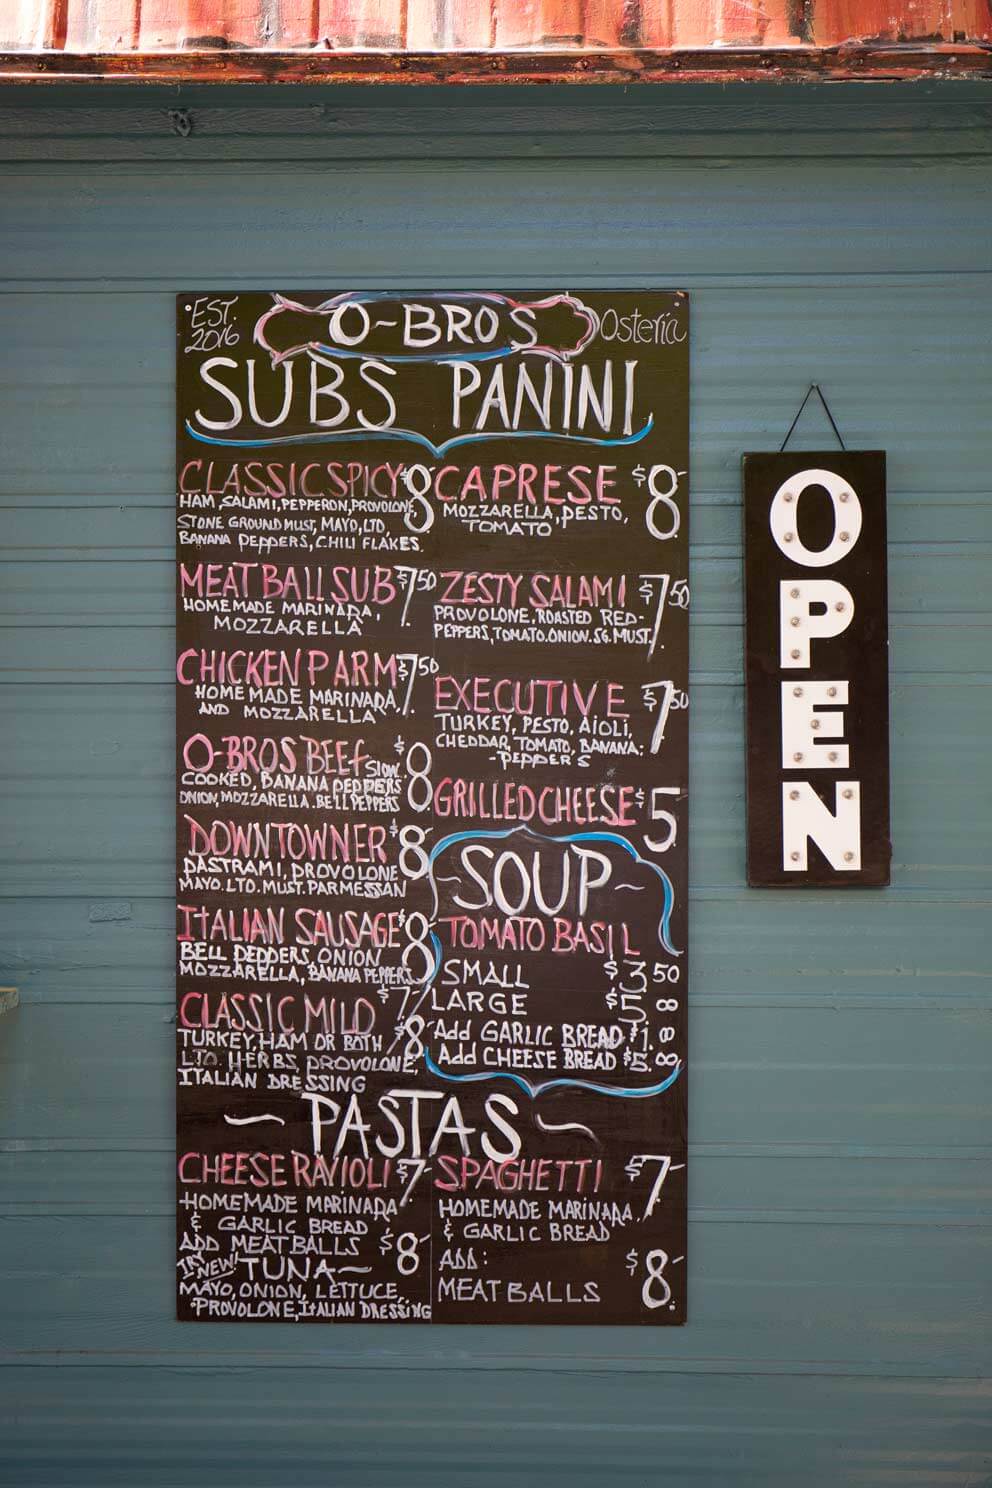 EST. 2016
O-BROS
Osteria
SUBS PANINI
CLASSIC SPICY $8
HAM, SALAMI, PEPPERON, PROVOLONE,
STONE GROUND MUST, MAYO, LTO,
BANANA PEPPERS, CHILI FLAKES.
MEATBALL SUB $7 50
HOMEMADE MARINARA,
MOZZARELLA
CHICKEN PARM $7 50
HOMEMADE MARINARA
AND MOZZARELLA
O-BROS BEEF $8
SLOW
COOKED, BANANA PEPPERS
ONION, MOZZARELLA. BELL PEPPERS
DOWNTOWNER $8
PASTRAMI, PROVOLONE
MAYO. LTO. MUST. PARMESSAN
ITALIAN SAUSAGE $8
BELL PEPPERS, ONION
MOZZARELLA, BANANA PEPPERS
CLASSIC MILD $7/$8
TURKEY, HAM OR BOTH
LTO. HERBS, PROVOLONE,
ITALIAN DRESSING
CAPRESE $8
MOZZARELLA, PESTO,
TOMATO
ZESTY SALAMI $7 50
PROVOLONE, ROASTED RED-
PEPPERS, TOMATO. ONION. SG. MUST.
EXECUTIVE $7 50
TURKEY, PESTO, AIOLI,
CHEDDAR, TOMATO, BANANA-
-PEPPERS
GRILLED CHEESE $5
SOUP
TOMATO BASIL
SMALL $3 50
LARGE $5 00
Add GARLIC BREAD $1. 00
Add CHEESE BREAD $5. 00
PASTAS
CHEESE RAVIOLI $7
HOMEMADE MARINARA
& GARLIC BREAD
ADD MEATBALLS $8
TRY NEW! TUNA
MAYO, ONION, LETTUCE,
PROVOLONE, ITALIAN DRESSING
SPAGHETTI $7
HOMEMADE MARINARA.
& GARLIC BREAD
ADD:
MEATBALLS $8
OPEN